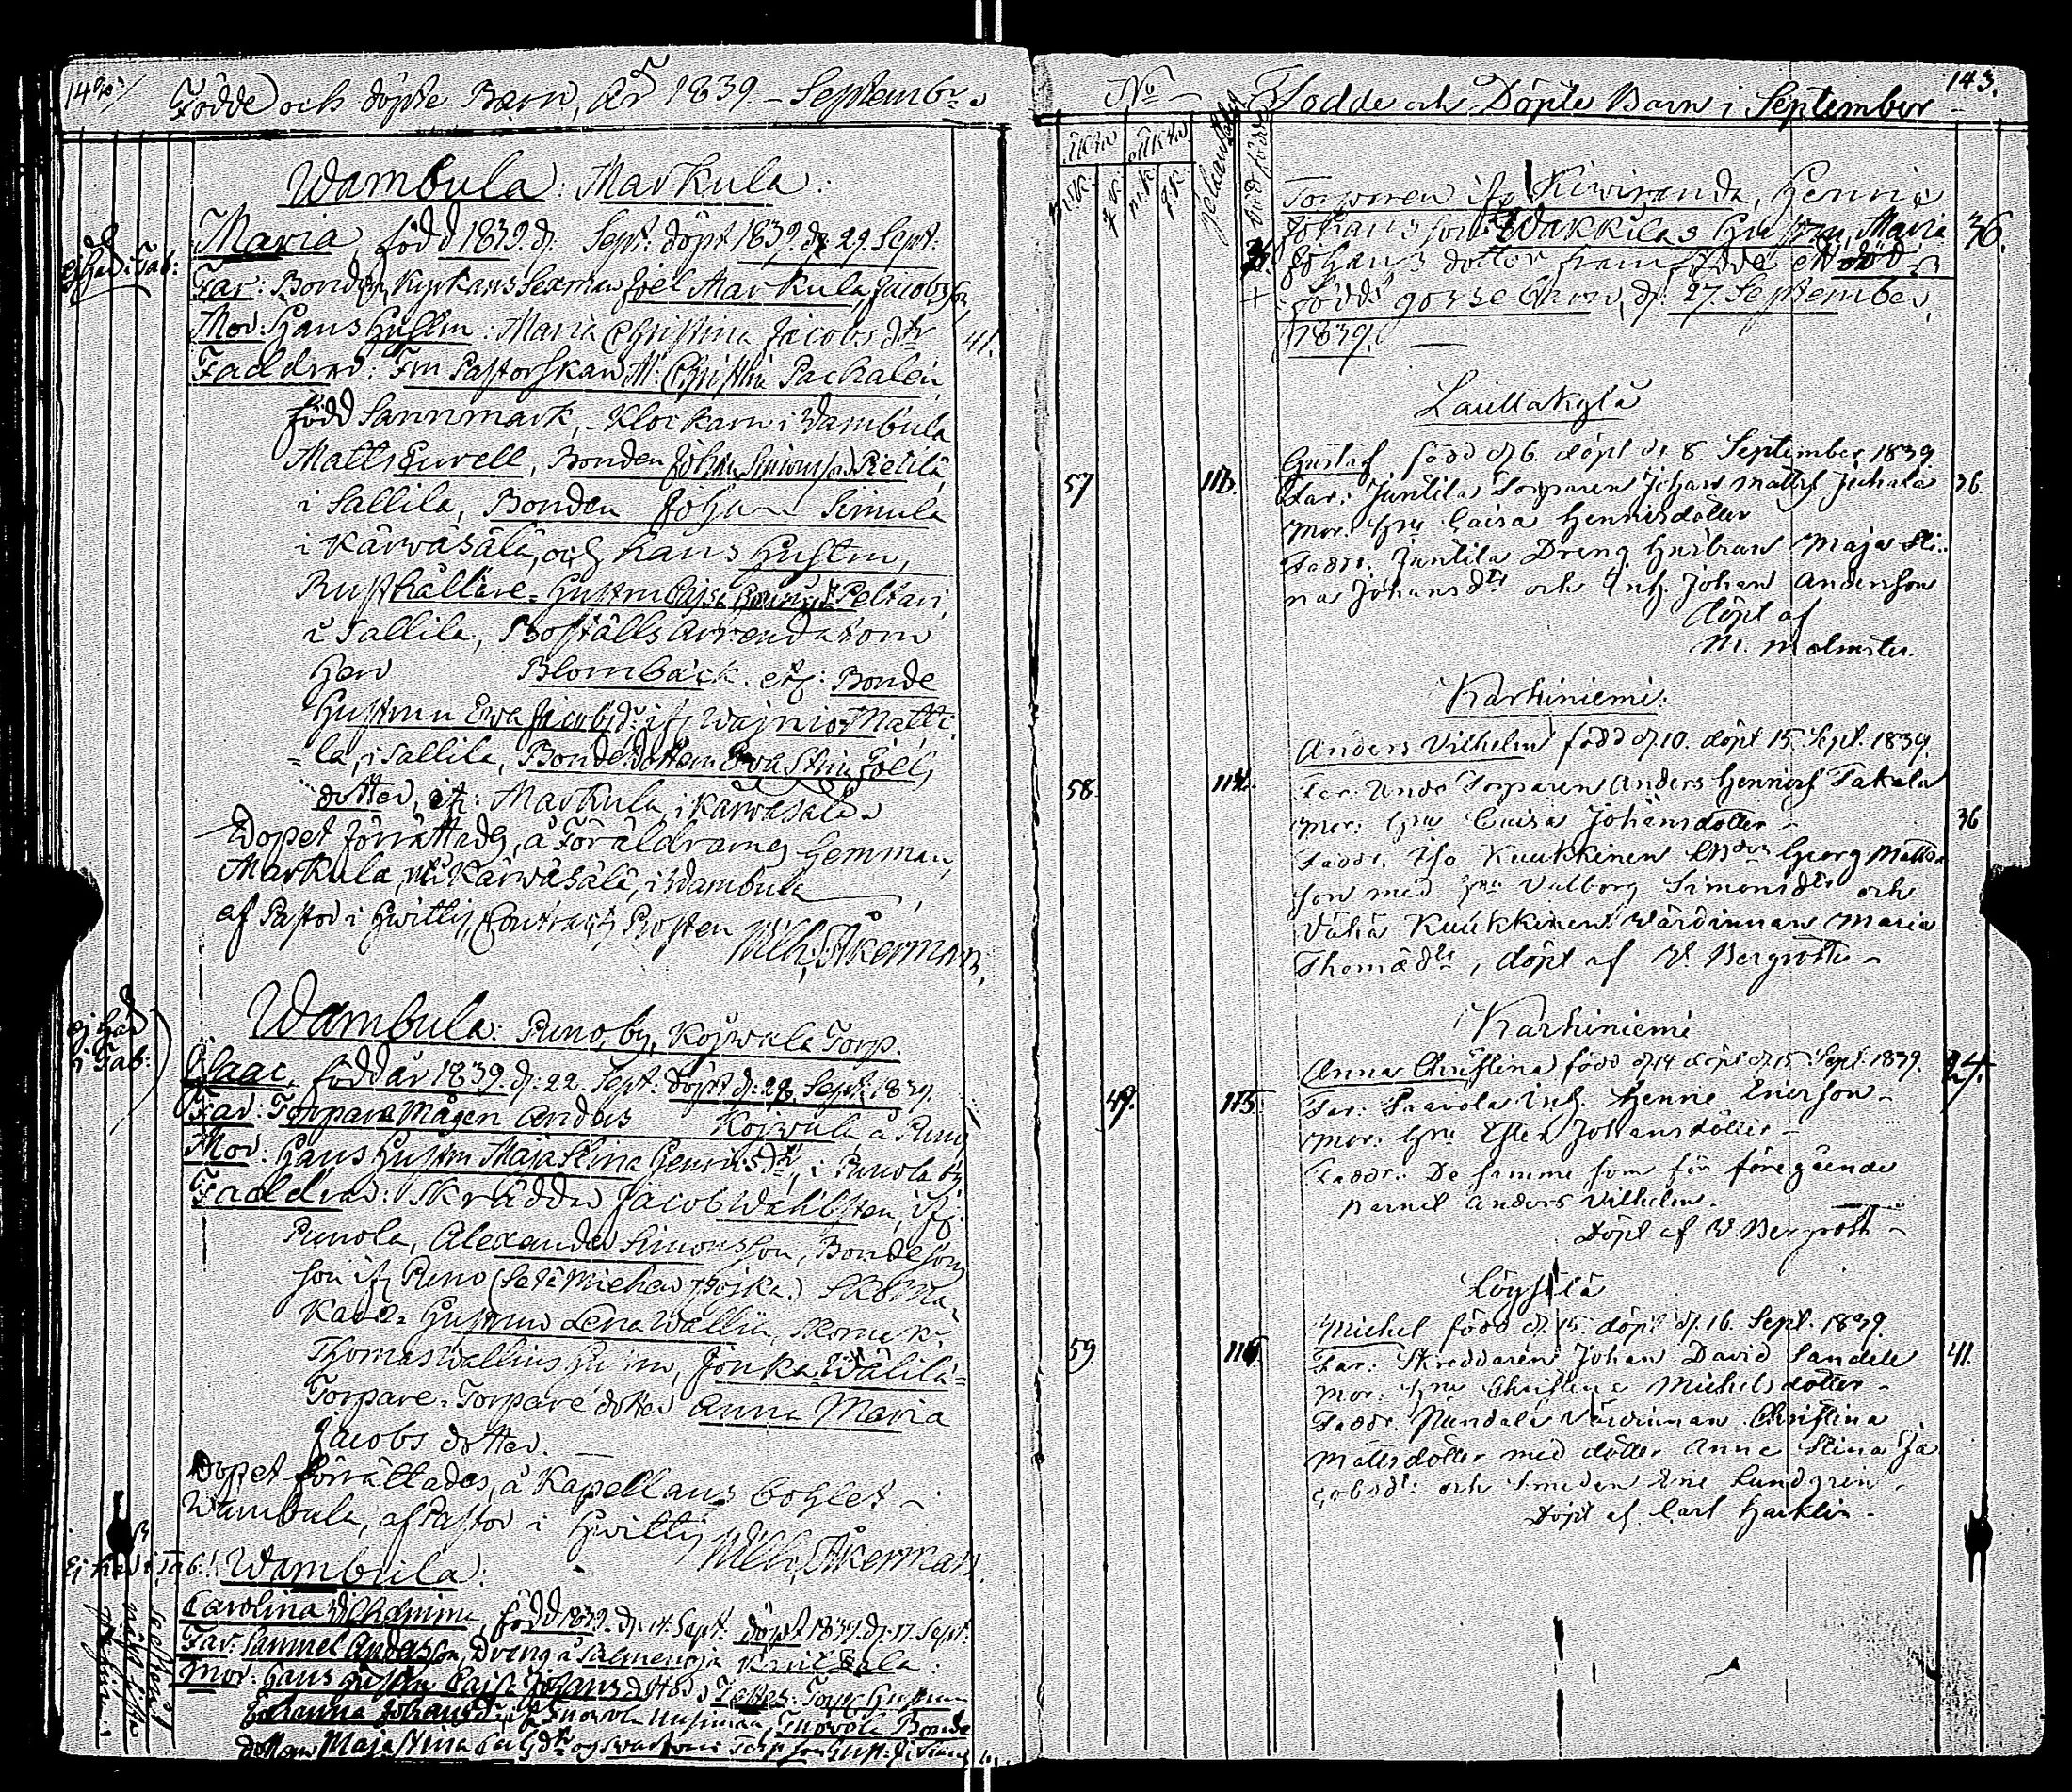 142
Födde och döpte Barn, år 1839. – Septembr.
Wambula: Markula:
ej här i Tab:
Maria, född 1839. d. Sept: döpt 1839. d. 29. Sept:
Far: Bonden, Kyrkans Sexman Joel Markula, Jacobsson,
Mor: Hans Hustru: Maria Christina Jacobs dtr
41.
Faddrar: Fru Pastorskan M: Christin Pachalén,
född Sannmark, – Klockarn i Wambula
Matts Gurell, Bonden Johan Simonsson Pietilä,
i Sallila, Bonden Johan Simula
i Kärwäsälä, och hans Hustru,
Rusthållare-Hustru Cajsa Peltari,
i Sallila, Boställs Arrendatorn
Herr Blombäck. etc: Bonde
Hustrun Ewa Jacobsdr, ifr Wajnio Matti-
la, i Sallila, Bondedottern Ewa Stina Joels
dotter, ifr: Markula, i Kärwäsälä.
Dopet förrättades, å Föräldrarnes Hemman,
Markula, Kärwäsälä, i Wambula
af Pastor i Hwittis, Contracts Prosten
Wilh: Åkerman.
Wambula: Puno, by, Köjwula Torp.
ej här
i Tab:
Isaac, född år 1839. d: 22. Sept: döpt d: 28. Sept: 1839.
Far: Torpare Mågen Anders Köjwula å Puno
Mor: Hans Hustru Maja Stina Henricsdr, i Punola by
Faddrar: Skräddar Jacob Wahlsten, ifr
Punola, Alexander Simonsson, Bondeson
son ifr Puno (Sete Michen Pojka.) Skoma-
kare Hustrun Lena Wallin, Skomak:
Thomas Wallins Hustru, Jonka-Wälilä-
Torpare-Torpare dotter Anna Maria
Jacobs dotter.
Dopet förrättades, å Kapellans Bohlet –
Wambula, af Pastor i Hwittis
Wilh: Åkerman.
Ej här i Tab: Wambula:
Carolina Wilhelmina, född 1839. d. 14. Sept. döpt 1839. d. 17. Sept:
Far: Samuel Andersson, Dreng å Salmenoja
Mor: Hans Hustru Cajsa Johansdotter
Johanna Johansdr, Bonde
dottern Maja Stina
No
143.
Födde och Döpte Barn i September
äkta
oäkta
m.k.
q.k.
m.k.
q.k.
död född
Torparen ifr Kiwiranda, Henric
Johansson Wakkilas Hustru, Maria
36.
Johans dotter framfödde ett död
+ född gosse Barn, d: 27. September,
1839.
Lauttakylä
Gustaf född d. 6. döpt d. 8. September 1839.
57
113.
Far: Juntila Torparen Johan Matts Juhala
36.
Mor: Hru Caisa Henricsdotter
Faddr. Juntila Dreng Hustrun Maja Sti-
na Johansdtr och Inh. Johan Andersson
döpt af
M. Molmster.
Karhiniemi:
Anders Vilhelm född d. 10. döpt 15. Sept. 1839.
58.
114.
Far: Undo Torparen Anders Henricss Takala
Mor: Hru Caisa Johansdotter –
36
Faddr. Iso Kuukkinen Georg Matts-
son med Hru Valborg Simonsdtr och
Vähä Kuukkinen Värdinnan Maria
Thomædtr, döpt af V. Bergroth –
Karhiniemi
Anna Christina född d. 14 döpt d. 15. Sept. 1839.
24.
49.
115.
Far: Paavola Inh. Henric Ericsson –
Mor: Hru Ester Johansdotter –
Faddr. De samme som för föregående
Barnet Anders Vilhelm.
Döpt af V. Bergroth –
Löysilä
Michel född d. 15. döpt d. 16. Sept. 1839.
59.
116.
Far: Skreddaren Johan David Sandell
41.
Mor: Hru Christina Michelsdotter –
Faddr. Värdinnan Christina
Mattsdotter med dotter Anna Stina Ja-
cobsdr: och Smeden Lundgren
Döpt af Carl Harklin –